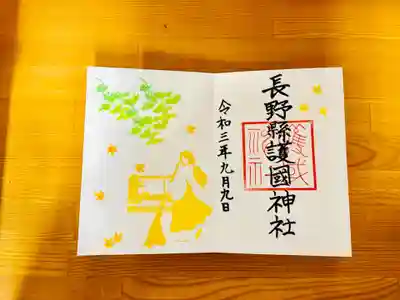 長野縣護國神社
令和三年九月九日